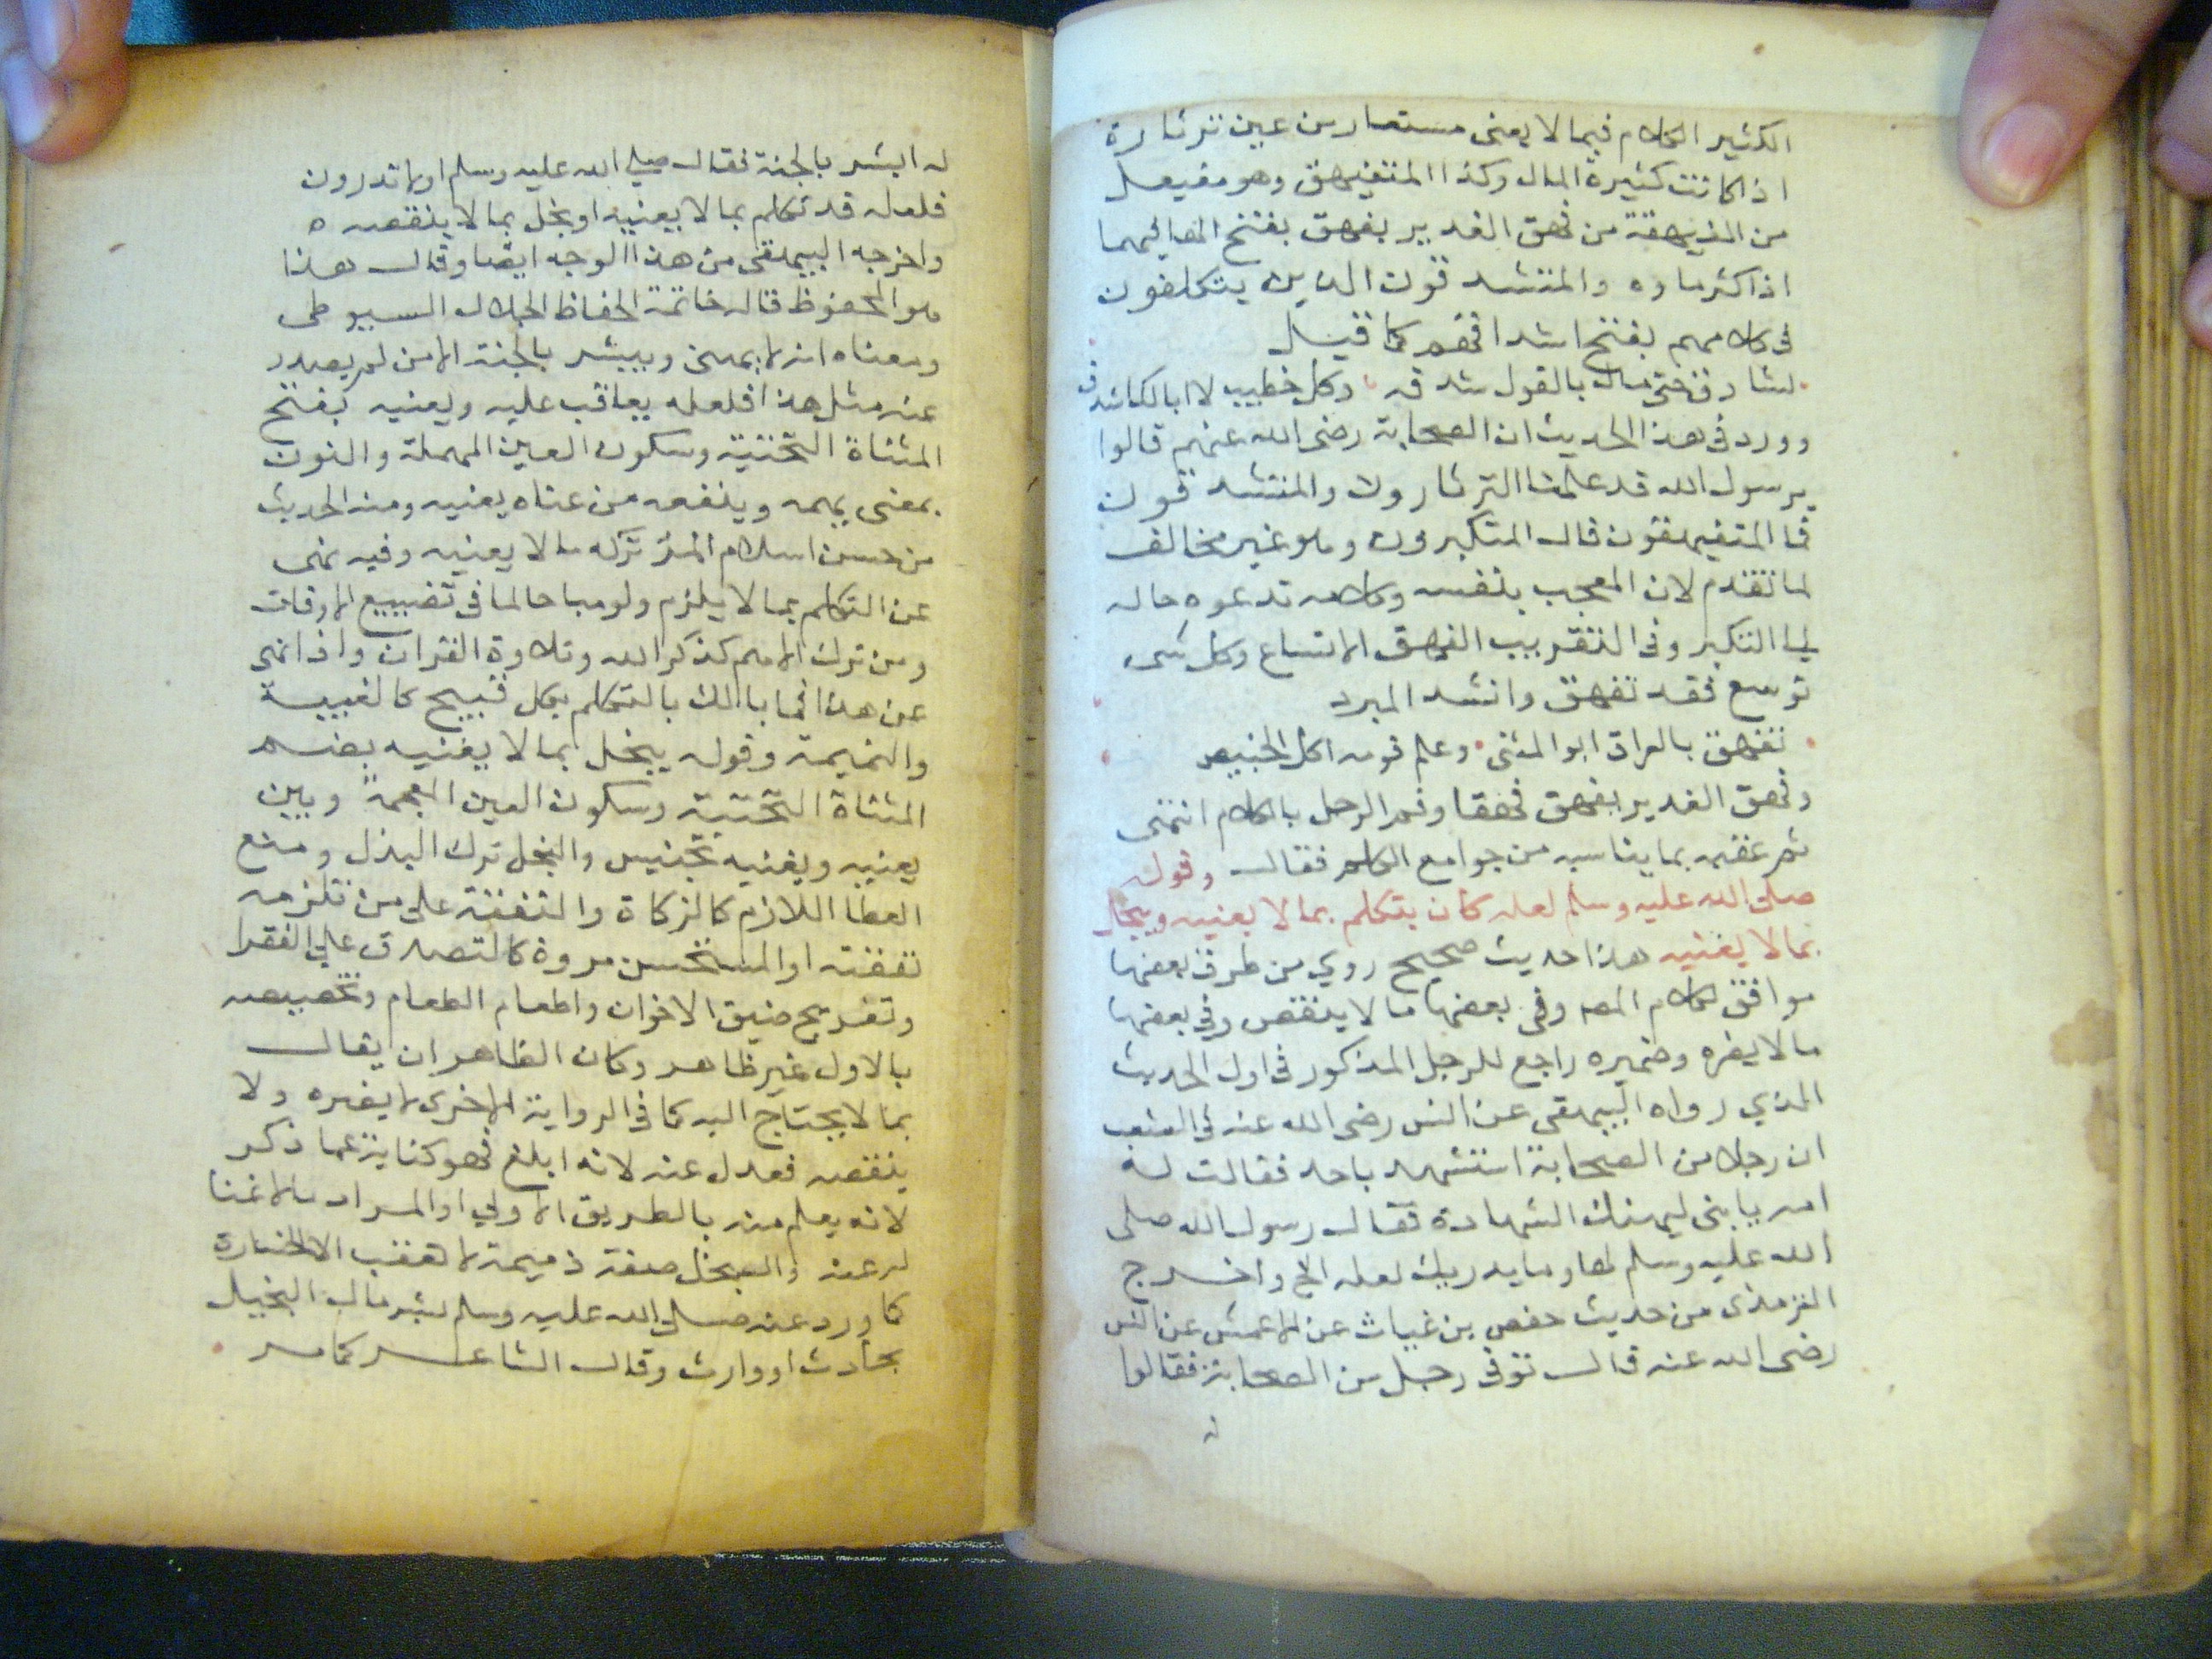 الكثير الكلام فيما لا يعنى مستعار من عين ثرثارة
اذا كانت كثيرة الماء وكذا المتفيهق وهو مفيعل
من الفيهقة من فهق الغدير يفهق بفتح الها فيهما
اذا كثر ماوه والمتشد قون الذين يتكلفون
فى كلامهم بفتح اشداقهم كما قيل
تشادق حتى مال بالقول شدقه وكل خطيب لا ابالك اشدق
وورد فى هذا الحديث ان الصحابة رضى الله عنهم قالوا
يرسول الله قد علمنا الثرثارون والمتشد قون
فما المتفيهقون قال المتكبرون وهو غير مخالف
لما تقدم لان المعجب بنفسه وكلامه تدعوه حاله
الى التكبر وفى التقريب الفهق الاتساع وكل شى
توسع فقد تفهق وانشد المبرد
تفهق بالعراق ابو المثنى وعلم قومه اكل الخبيص
وفهق الغدير يفهق فهقا وفم الرجل بالكلام انتهى
ثم عقبه بما يناسبه من جوامع الكلم فقال وقوله
صلى الله عليه وسلم لعله كان يتكلم بما لا يعنيه ويبخل
بما لا يغنيه هذا حديث صحيح روي من طرق بعضها
موافق لكلام المصـ وفى بعضها ما لا ينقص وفى بعضها
ما لا يضره وضميره راجع للرجل المذكور فى اول الحديث
الذي رواه البيهقى عن انس رضى الله عنه فى الشعب
ان رجلا من الصحابة استشهد باحد فقالت له
امه يا بنى ليهنك الشهادة فقال رسول الله صلى
الله عليه وسلم لها وما يدريك لعله الخ واخرج
الترمذى من حديث حفص بن غياث عن الاعمش عن انس
رضى الله عنه قال توفى رجل من الصحابة فقالوا
له
له ابشر بالجنة فقال صلى الله عليه وسلم اولا تدرون
فلعله قد تكلم بما لا يعنيه او بخل بما لا ينقصه ه
واخرجه البيهقى من هذا الوجه ايضا وقال هذا
هو المحفوظ قاله خاتمة الحفاظ الجلال السيوطى
ومعناه انه لا يهنى ويبشر بالجنة الا من لم يصدر
عنه مثل هذا فلعله يعاقب عليه ويعنيه بفتح
المثناة التحتية وسكون العين المهملة والنون
بمعنى يهمه وينفعه من عناه يعنيه ومنه الحديث
من حسن اسلام المرء تركه ما لا يعنيه وفيه نهى
عن التكلم بما لا يلزم ولو مباحا لما فى تضييع الاوقات
ومن ترك الاهم كذكر الله وتلاوة القران واذا نهى
عن هذا فما بالك بالتكلم بكل قبيح كالغيبة
والنميمة وقوله يبخل بما لا يغنيه بضم
المثناة التحتية وسكون الغين المعجمة وبين
يعنيه ويغنيه تجنيس والبخل ترك البذل ومنع
العطا اللازم كالزكاة والنفقة على من تلزمه
نفقته او المستحسن مروة كالتصدق على الفقرا
وتفريج ضيق الاخوان واطعام الطعام وتخصيصه
بالاول غير ظاهر وكان الظاهر ان يقال
بما لا يحتاج اليه كما فى الرواية الاخرى لا يضره ولا
ينقصه فعدل عنه لانه ابلغ فهو كناية عما ذكر
لانه يعلم منه بالطريق الاولي او المراد ما لا غنا
له عنه والبخل صفة ذميمة لا تعقب الا الخسارة
كما ورد عنه صلى الله عليه وسلم بشر مال البخيل
بحادث او وارث وقال الشاعر كما مر